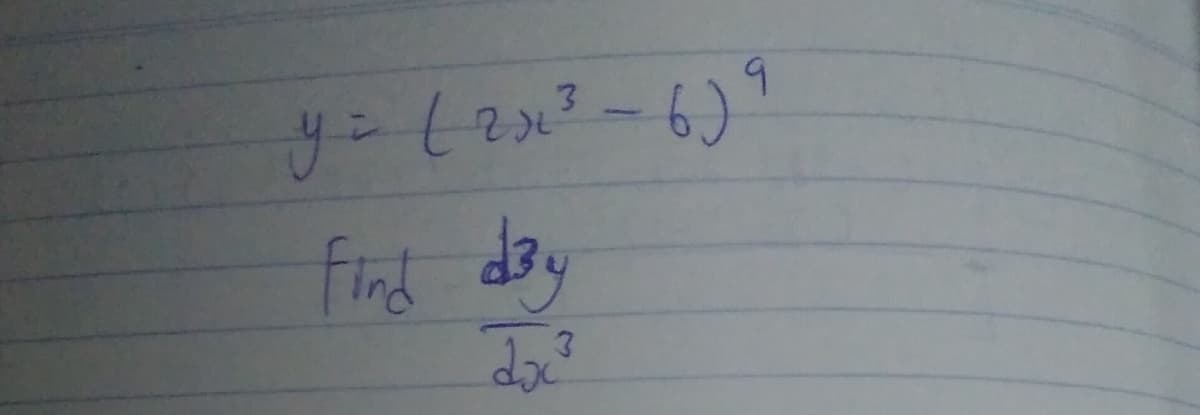 y = (2x³ - 6)⁹
Find d³y
dx³